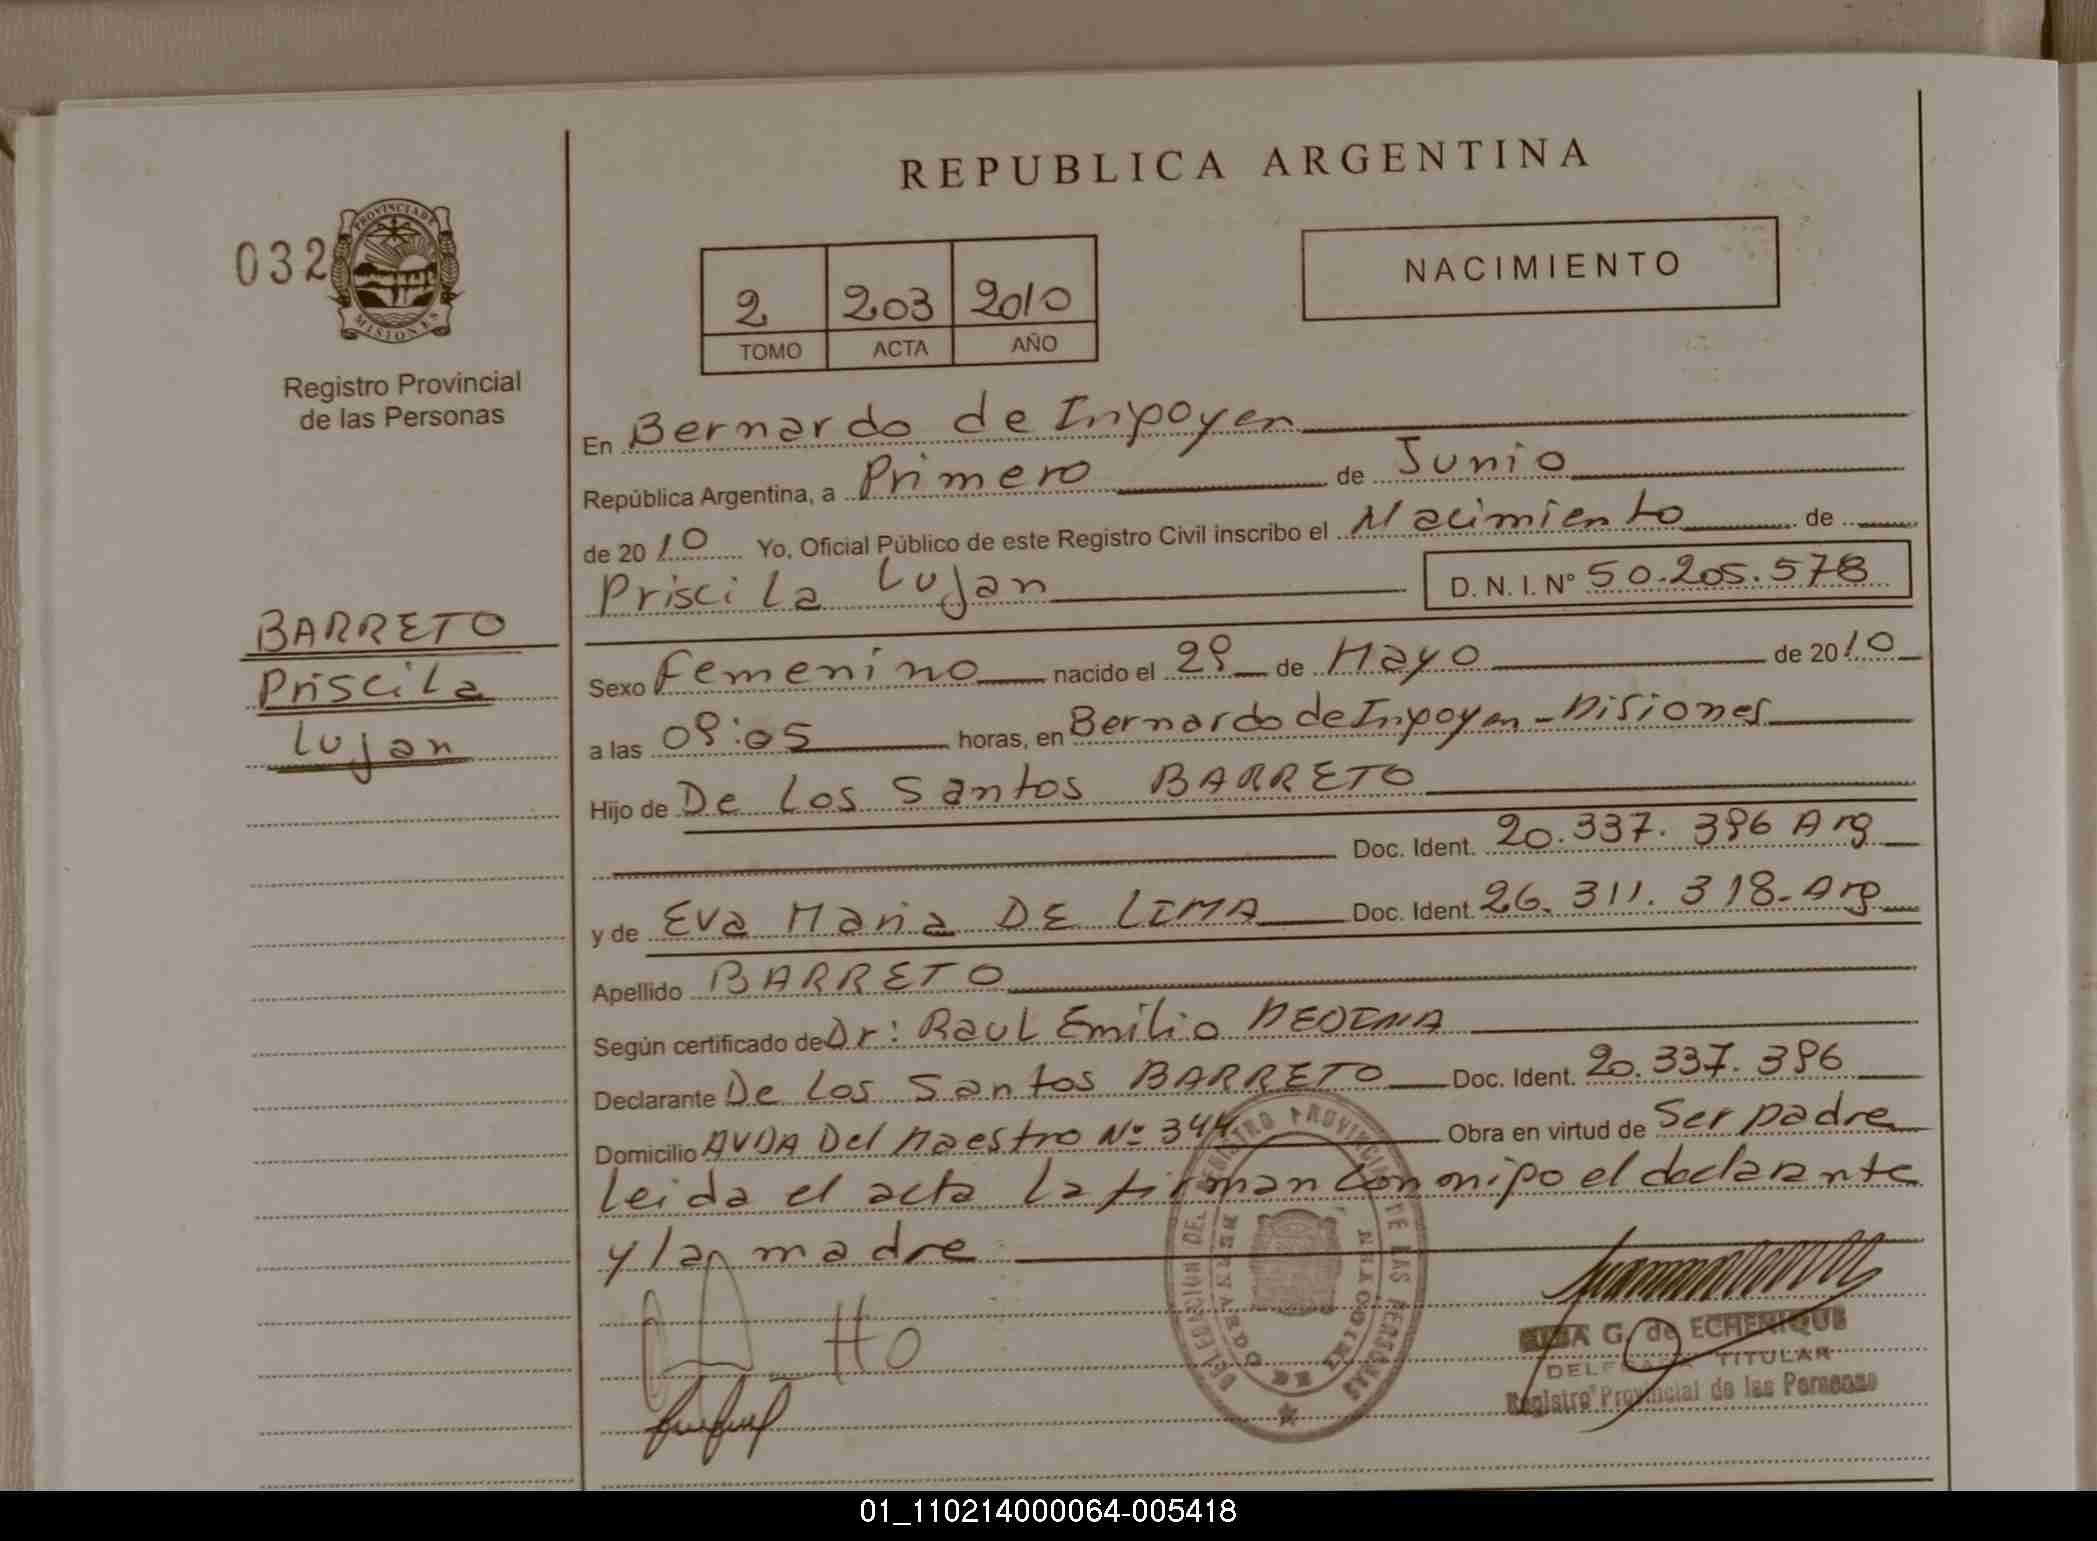 REPUBLICA ARGENTINA
032
PROVINCIA DE
MISIONES
Registro Provincial
de las Personas
2 203 2010
TOMO ACTA AÑO
NACIMIENTO
En Bernardo de Irigoyen
República Argentina, a Primero de Junio
de 2010 Yo, Oficial Público de este Registro Civil inscribo el Nacimiento de
Priscila Lujan D. N. I. N° 50.205.578
BARRETO
Priscila
Lujan
Sexo Femenino nacido el 29 de Mayo de 2010
a las 09:05 horas, en Bernardo de Irigoyen - Misiones
Hijo de De Los Santos BARRETO
Doc. Ident. 20.337.396 Arg
y de Eva Maria DE LIMA Doc. Ident. 26.311.318 - Arg
Apellido BARRETO
Según certificado de Dr: Raul Emilio MEDINA
Declarante De Los Santos BARRETO Doc. Ident. 20.337.396
Domicilio AVDA Del Maestro Nº 344 Obra en virtud de Ser padre
Leida el acta la firman conmigo el declarante
y la madre
DELEGACION DEL REGISTRO PROVINCIAL DE LAS PERSONAS
BERNARDO DE IRIGOYEN
G. de ECHENIQUE
DELEGADA TITULAR
Registro Provincial de las Personas
01_110214000064-005418